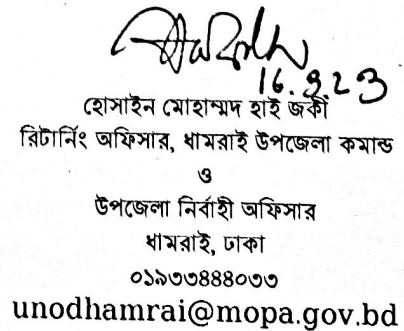 16.3.23
হোসাইন মোহাম্মদ হাই জকী
রিটার্নিং অফিসার, ধামরাই উপজেলা কমান্ড
ও
উপজেলা নির্বাহী অফিসার
ধামরাই, ঢাকা
০১৯৩৩৪৪৪০৩৩
unodhamrai@mopa.gov.bd